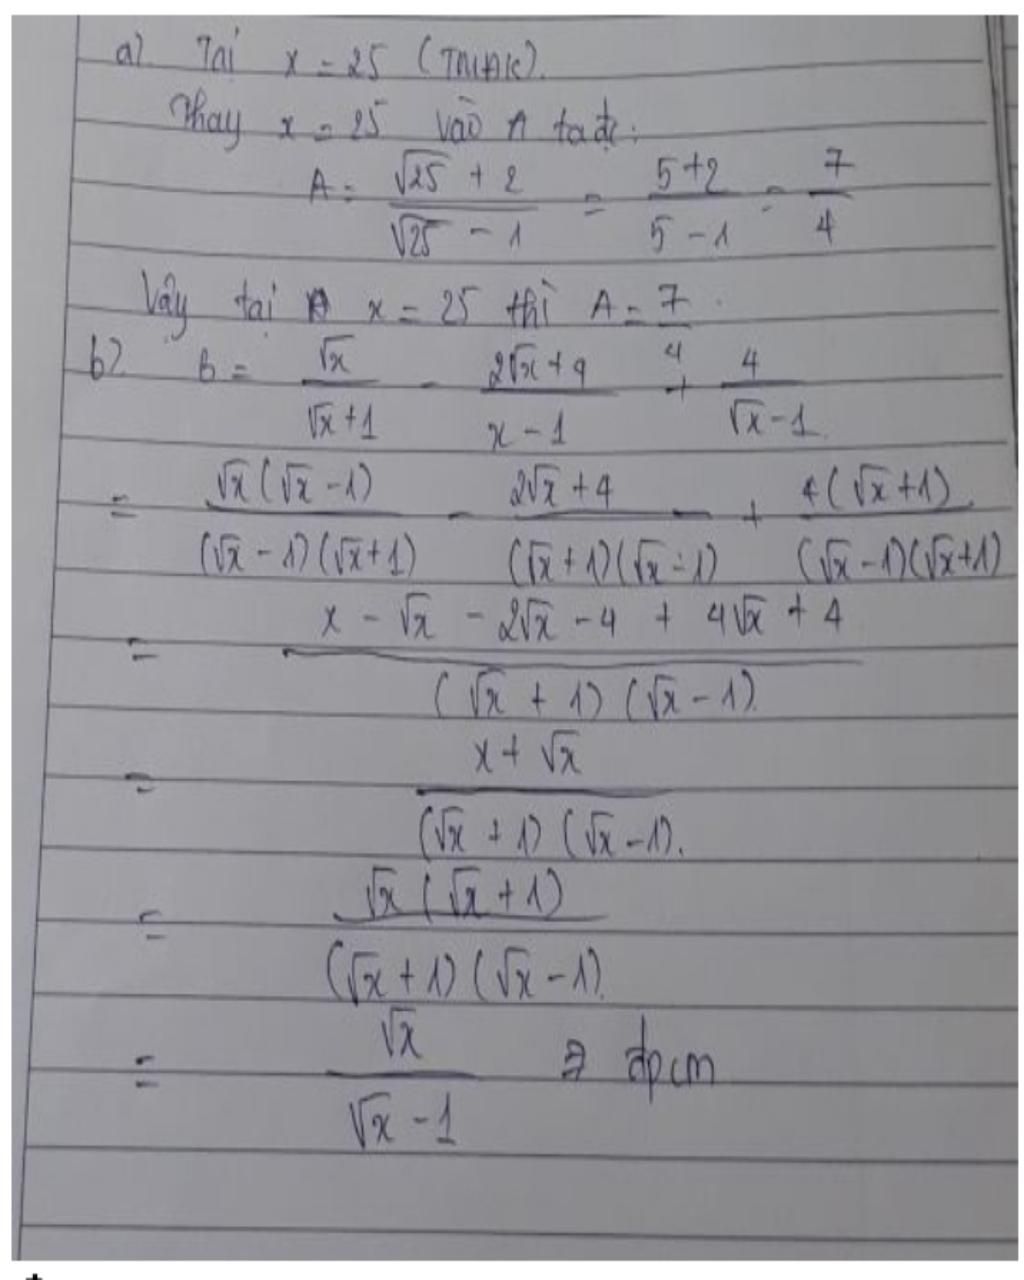 a) Tại x = 25 (TMĐK).
Thay x = 25 vào A ta đc:
A = \frac{\sqrt{25} + 2}{\sqrt{25} - 1} = \frac{5+2}{5-1} = \frac{7}{4}
Vậy tại x = 25 thì A = \frac{7}{4}.
b) B = \frac{\sqrt{x}}{\sqrt{x}+1} - \frac{2\sqrt{x}+4}{x-1} + \frac{4}{\sqrt{x}-1}.
= \frac{\sqrt{x}(\sqrt{x}-1)}{(\sqrt{x}-1)(\sqrt{x}+1)} - \frac{2\sqrt{x}+4}{(\sqrt{x}+1)(\sqrt{x}-1)} + \frac{4(\sqrt{x}+1)}{(\sqrt{x}-1)(\sqrt{x}+1)}
= \frac{x - \sqrt{x} - 2\sqrt{x} - 4 + 4\sqrt{x} + 4}{(\sqrt{x}+1)(\sqrt{x}-1)}.
= \frac{x + \sqrt{x}}{(\sqrt{x}+1)(\sqrt{x}-1)}.
= \frac{\sqrt{x}(\sqrt{x}+1)}{(\sqrt{x}+1)(\sqrt{x}-1)}.
= \frac{\sqrt{x}}{\sqrt{x}-1} ⇒ đpcm